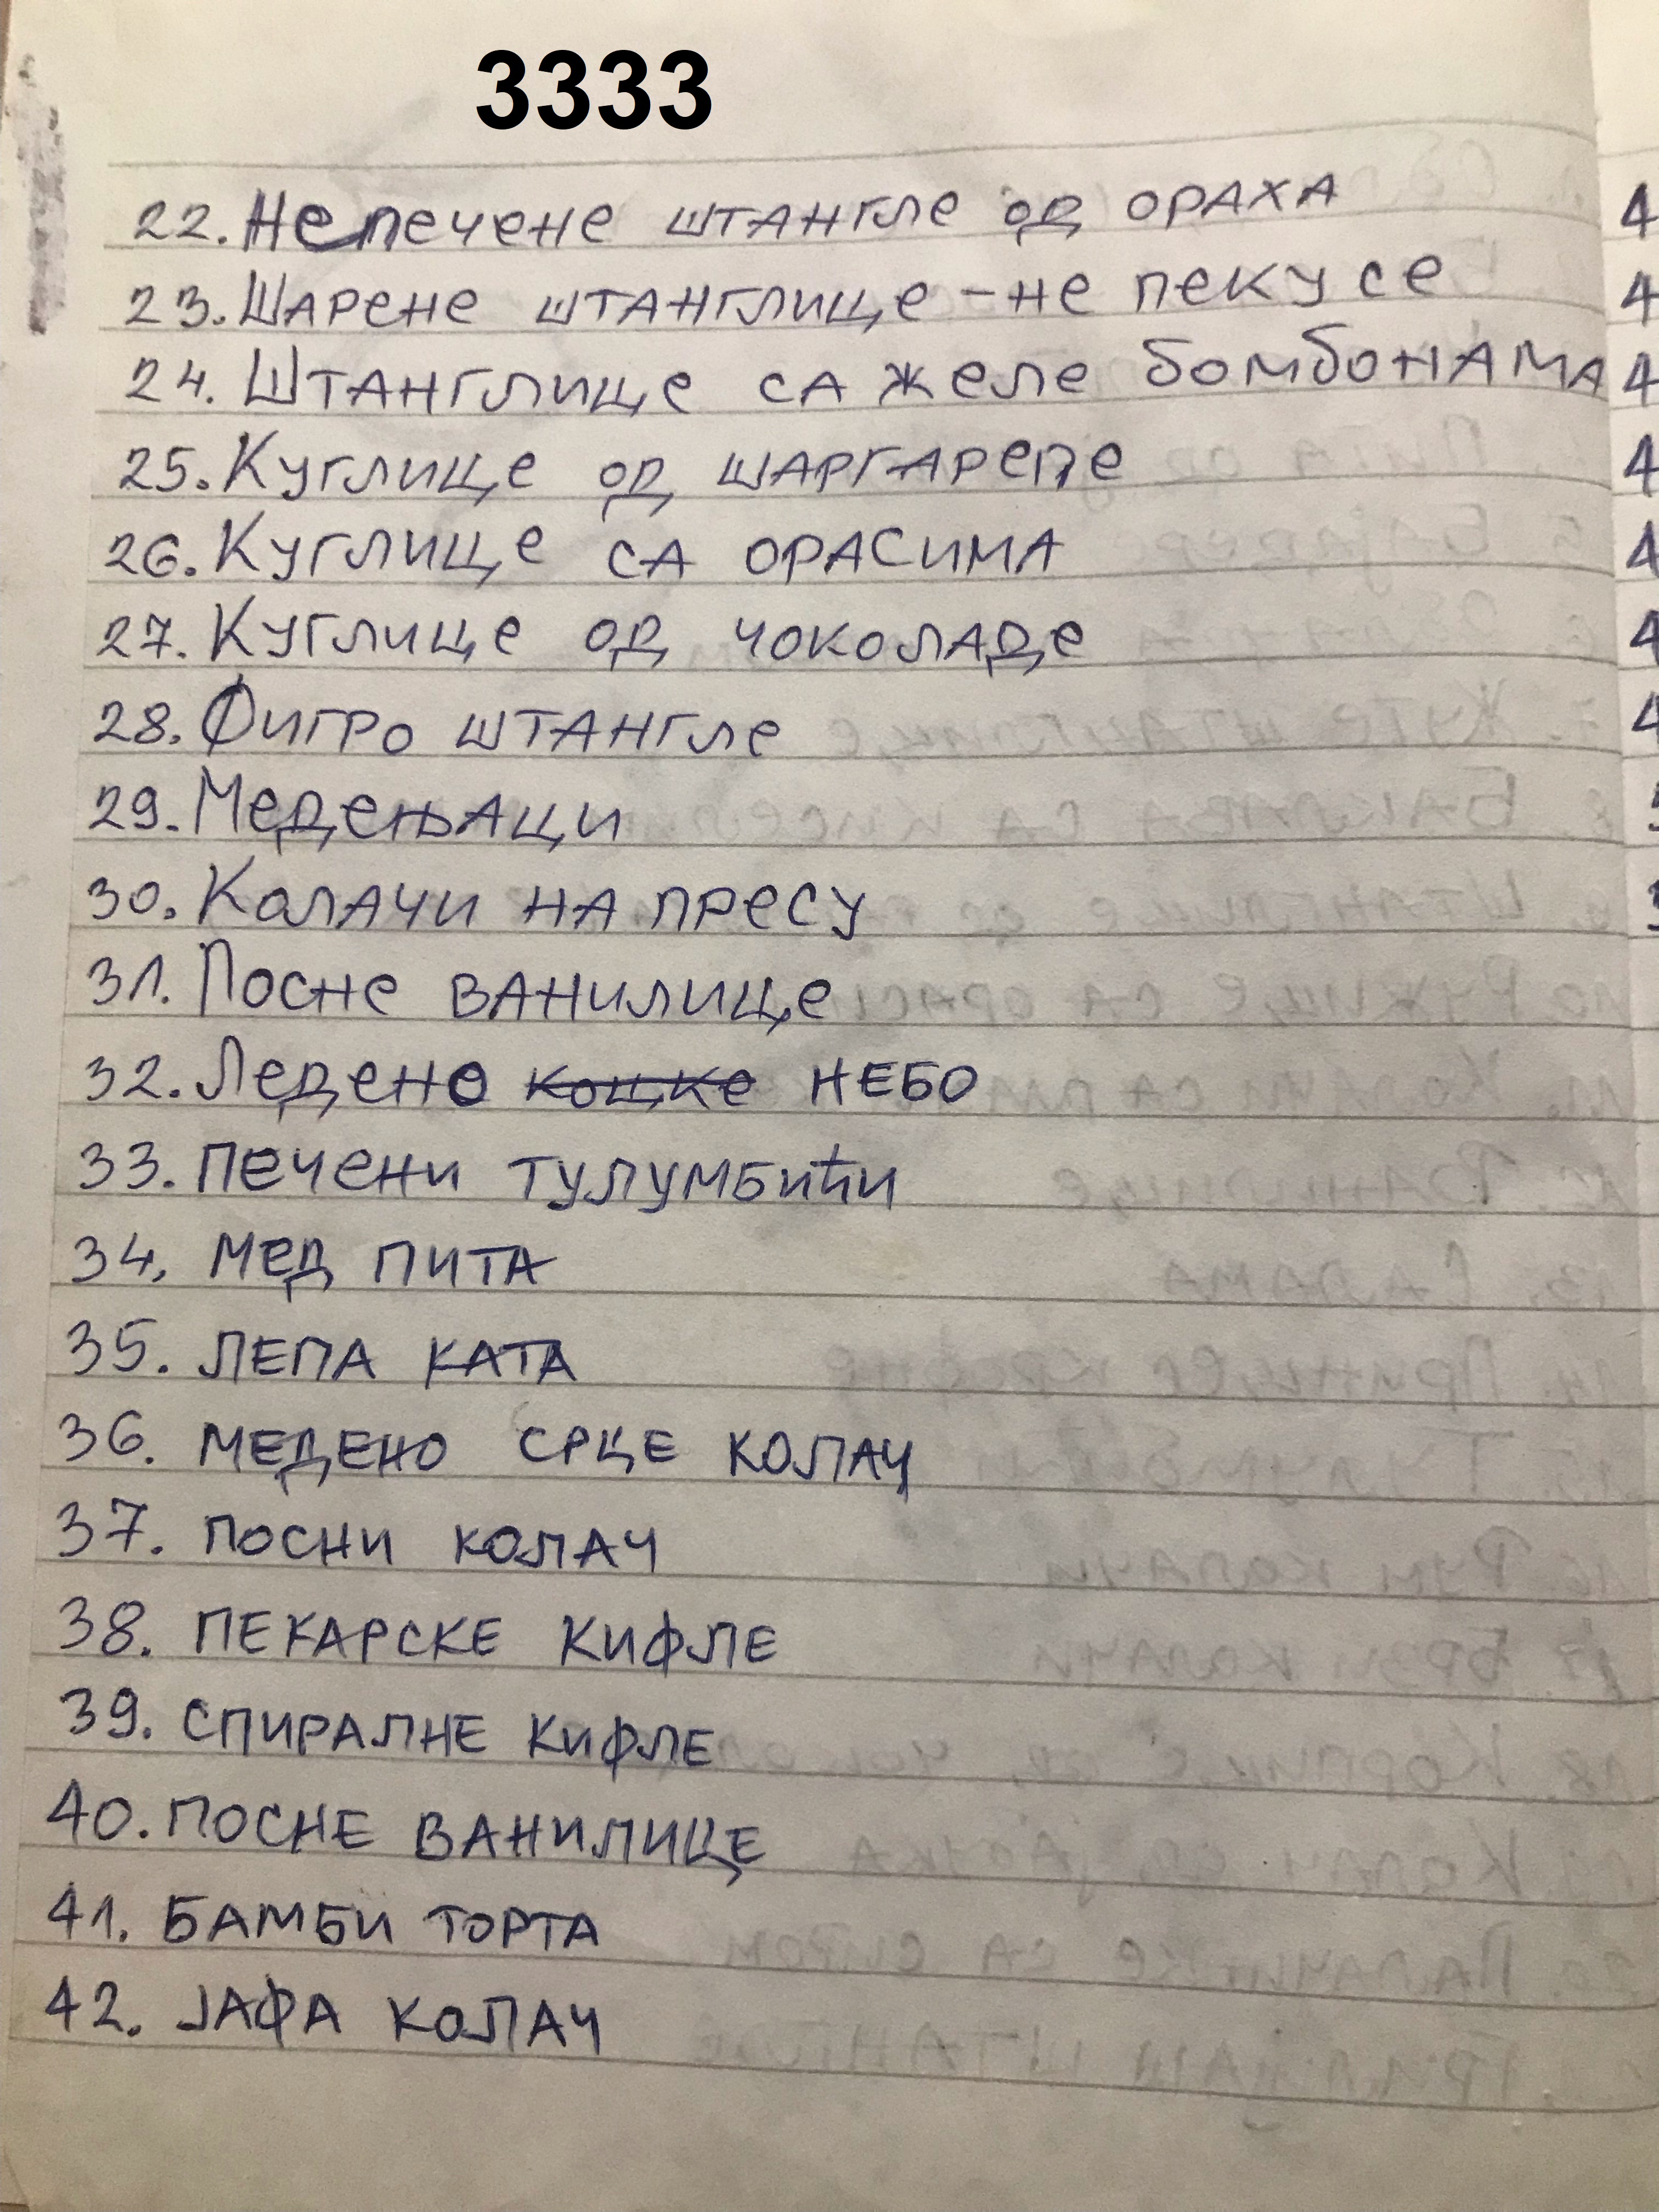 3333
22. Непечене штангле од ораха
23. Шарене штанглице - не пеку се
24. Штанглице са желе бомбонама
25. Куглице од шаргарепе
26. Куглице са орасима
27. Куглице од чоколаде
28. Фигро штангле
29. Медењаци
30. Колачи на пресу
31. Посне ванилице
32. Ледено коцке НЕБО
33. Печени тулумбићи
34. Мед пита
35. ЛЕПА КАТА
36. МЕДЕНО СРЦЕ КОЛАЧ
37. ПОСНИ КОЛАЧ
38. ПЕКАРСКЕ КИФЛЕ
39. СПИРАЛНЕ КИФЛЕ
40. ПОСНЕ ВАНИЛИЦЕ
41. БАМБИ ТОРТА
42. ЈАФА КОЛАЧ